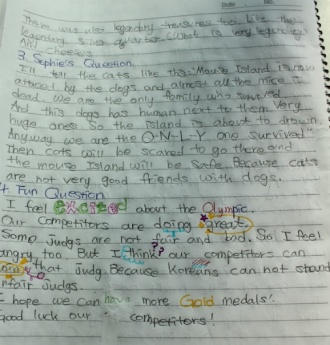 There was also legendary treasures too. Like the
legendary silver
And cheeses
3. Sophie's Question
I'll tell the cats like this "Mouse Island is now
attacked by the dogs and almost all the mice is
dead. we are the only family who survived
And this dogs has human next to them. Very
huge ones. So the island is about to drown.
Anyway we are the O-N-L-Y one survived"
Then cats will be scared to go there and
the mouse Island will be safe. Because cats
are not very good friends with dogs.
4. Fun Question
I feel excited about the Olympic.
Our competitors are doing great.
Some judgs are not fair and bad. So I feel
angry too. But I think?? our competitors can
that judg. Because Koreans can not stand
unfair judgs.
I hope we can have more Gold medals!
Good luck our competitors!